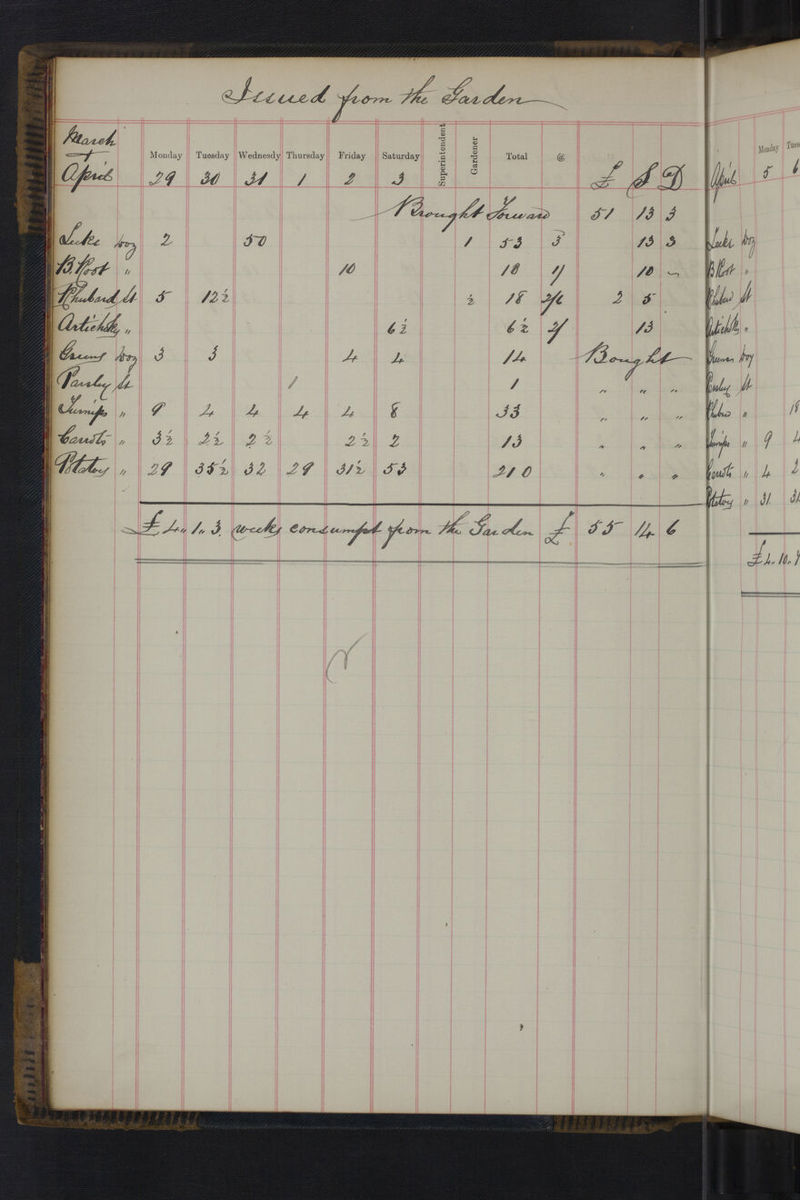 Issued from the Garden
March
Monday Tuesday Wednesdy Thursday Friday Saturday Superintendent Gardener Total @
April 29 30 31 1 2 3 £ S D
Brought Forward 51 13 3
Leeks doz 2 50 1 53 3 13 3
B. Root " 10 10 1/ 10 ~
Rhubard St 5 12½ ½ 18 2/6 2 5
Artichoks " 6½ 6½ 2/ 13
Greens doz 3 3 4 4 14 Bought
Parsley St 1 1 " " "
Turnips " 9 4 4 4 4 8 33 " " "
Carrots " 3½ 2½ 2½ 2½ 2 13 " " "
Potatoes " 29 35½ 32 29 31½ 53 210 " " "
£4" 1" 3. weeks consumpt from the Garden £ 55 14 6
Monday Tues
April 5 6
Leeks doz
B Root "
Rhubard St
Artichoks "
Greens doz
Parsley St
" 18
Turnips " 9 4
Carrots " 4 2
Potatoes " 31 31
£4. 10.